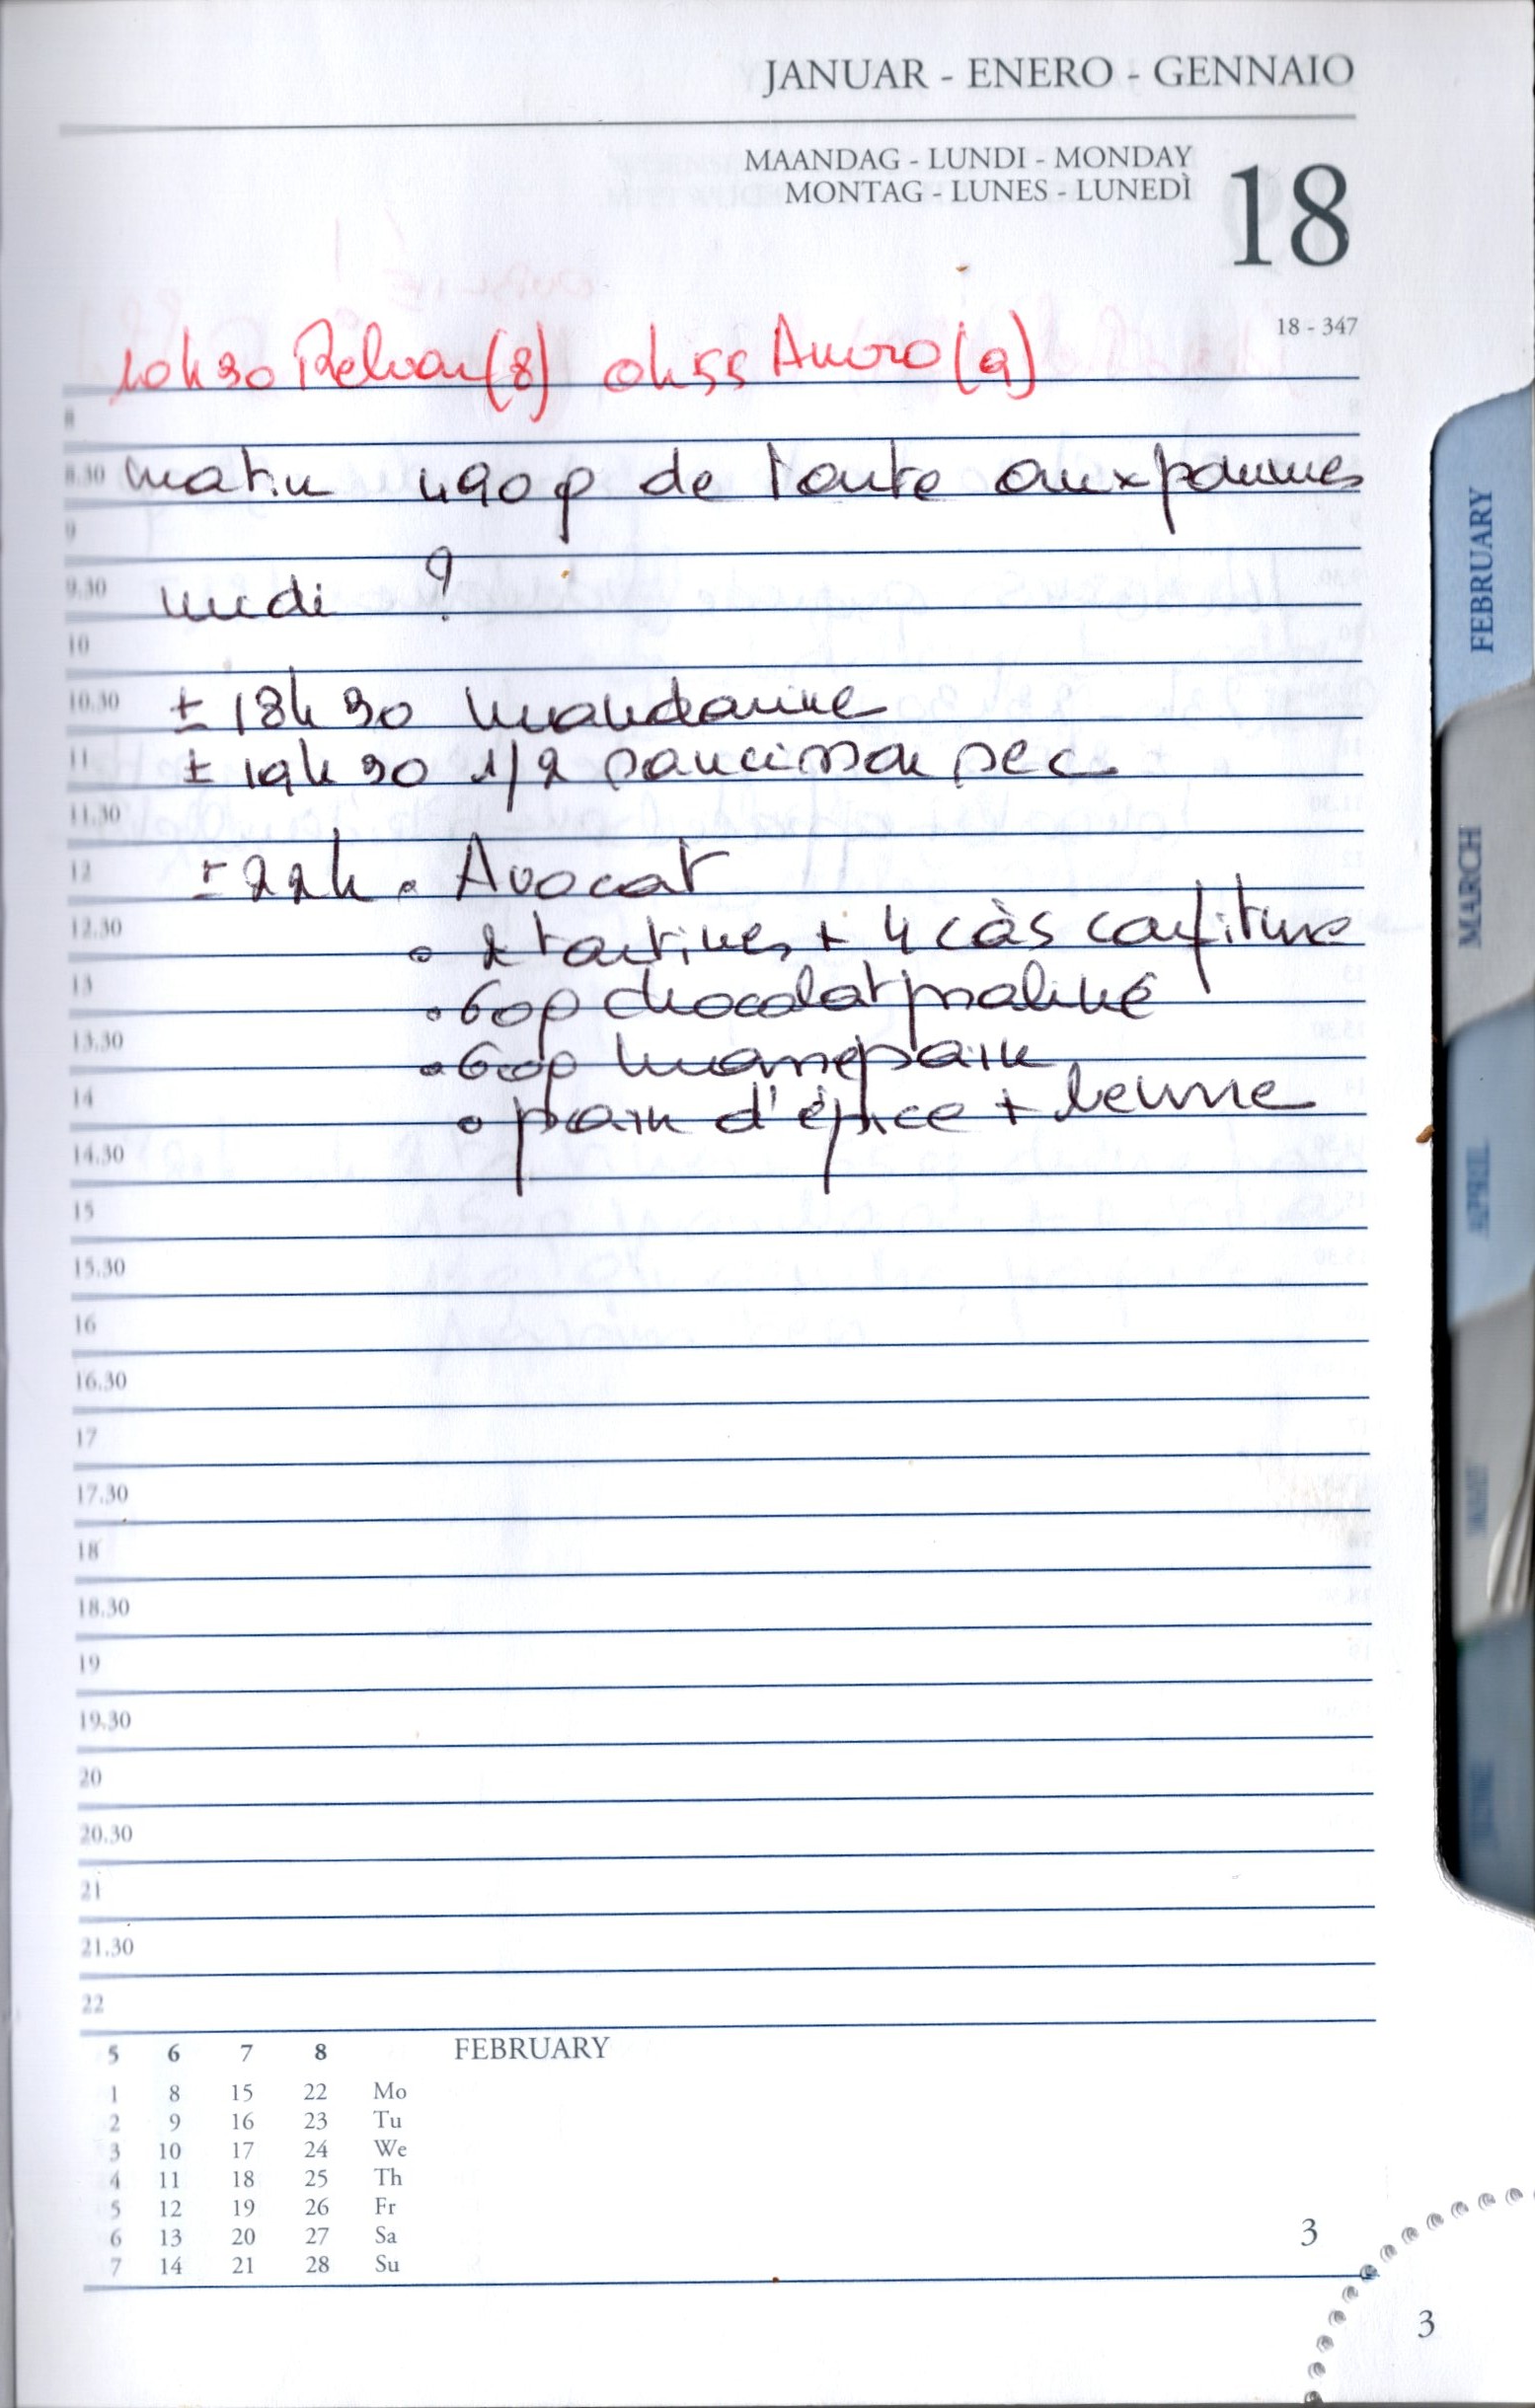 JANUAR - ENERO - GENNAIO
MAANDAG - LUNDI - MONDAY
MONTAG - LUNES - LUNEDÌ
18
18 - 347
10h30 (8) 0h55 (9)
8
8.30 matin 490g de tarte aux pommes
9
9.30 midi ?
10
10.30 ± 18h30 mandarine
11 ± 19h30 1/2 saucisson sec
11.30
12 ± 22h • Avocat
12.30 • 2 tartines + 4 càs confiture
13 • 60g chocolat praliné
13.30 • 60g massepain
14 • pain d'épice + beurre
14.30
15
15.30
16
16.30
17
17.30
18
18.30
19
19.30
20
20.30
21
21.30
22
5 6 7 8 FEBRUARY
1 8 15 22 Mo
2 9 16 23 Tu
3 10 17 24 We
4 11 18 25 Th
5 12 19 26 Fr
6 13 20 27 Sa
7 14 21 28 Su
3
3
FEBRUARY
MARCH
APRIL